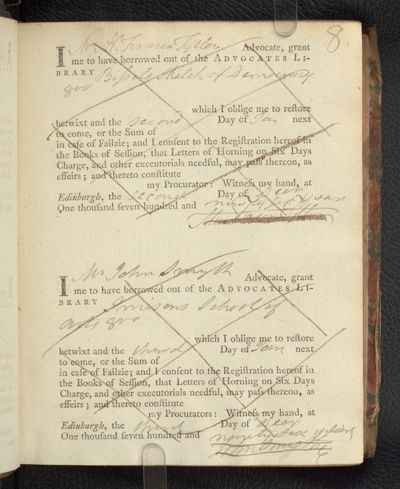 8.
I Mr Advocate, grant
me to have borrowed out of the ADVOCATES LI-
BRARY Bisset's Sketch of Democracy
8vo
which I oblige me to reſtore
betwixt and the second Day of Jan next
to come, or the Sum of
in caſe of Failzie; and I conſent to the Regiſtration hereof in
the Books of Seſſion, that Letters of Horning on Six Days
Charge, and other executorials needful, may paſs thereon, as
effeirs; and thereto conſtitute
my Procurator: Witneſs my hand, at
Edinburgh, the second Day of Decr
One thouſand ſeven hundred and ninety six years
I Mr John Smyth Advocate, grant
me to have borrowed out of the ADVOCATES LI-
BRARY School of
Arts 8vo
which I oblige me to reſtore
betwixt and the third Day of Jan next
to come, or the Sum of
in caſe of Failzie; and I conſent to the Regiſtration hereof in
the Books of Seſſion, that Letters of Horning on Six Days
Charge, and other executorials needful, may paſs thereon, as
effeirs; and thereto conſtitute
my Procurators: Witneſs my hand, at
Edinburgh, the third Day of Decr
One thouſand ſeven hundred and ninety six years